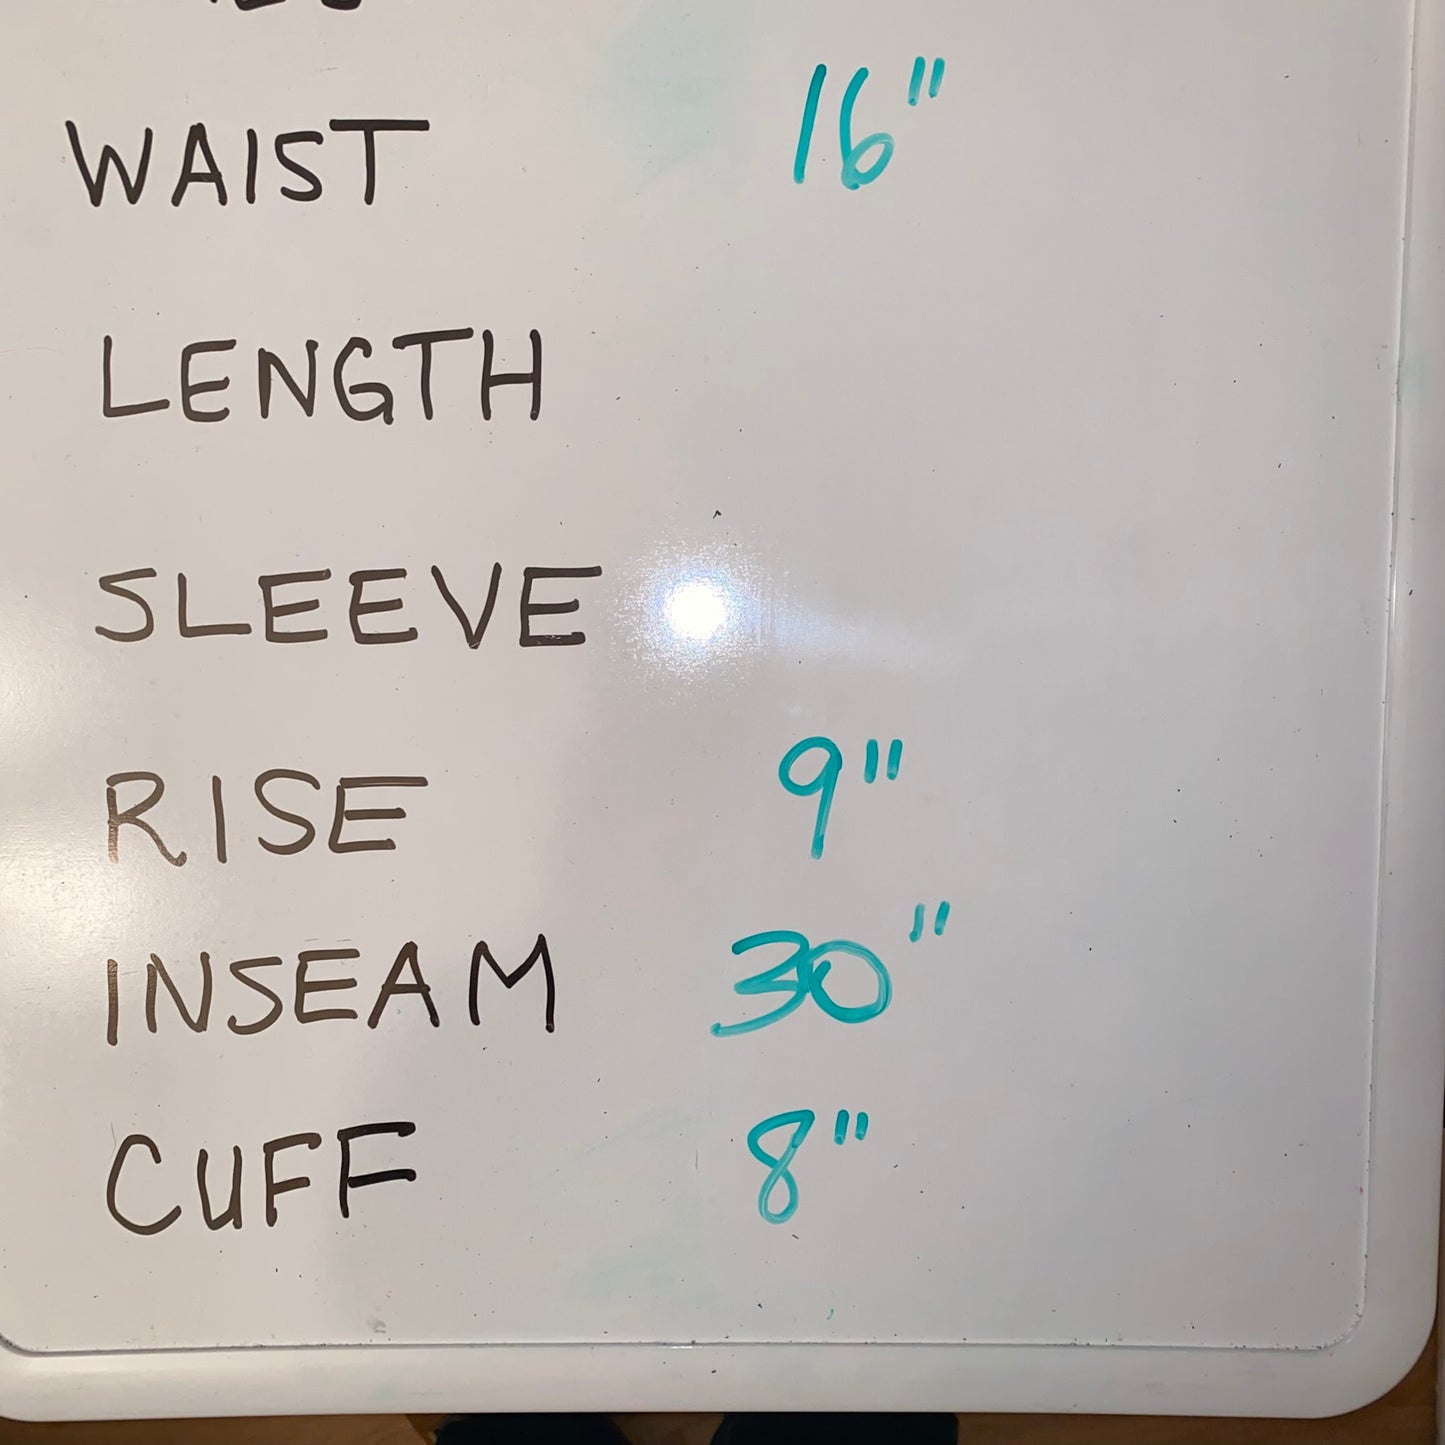 WAIST 16"
LENGTH
SLEEVE
RISE 9"
INSEAM 30"
CUFF 8"